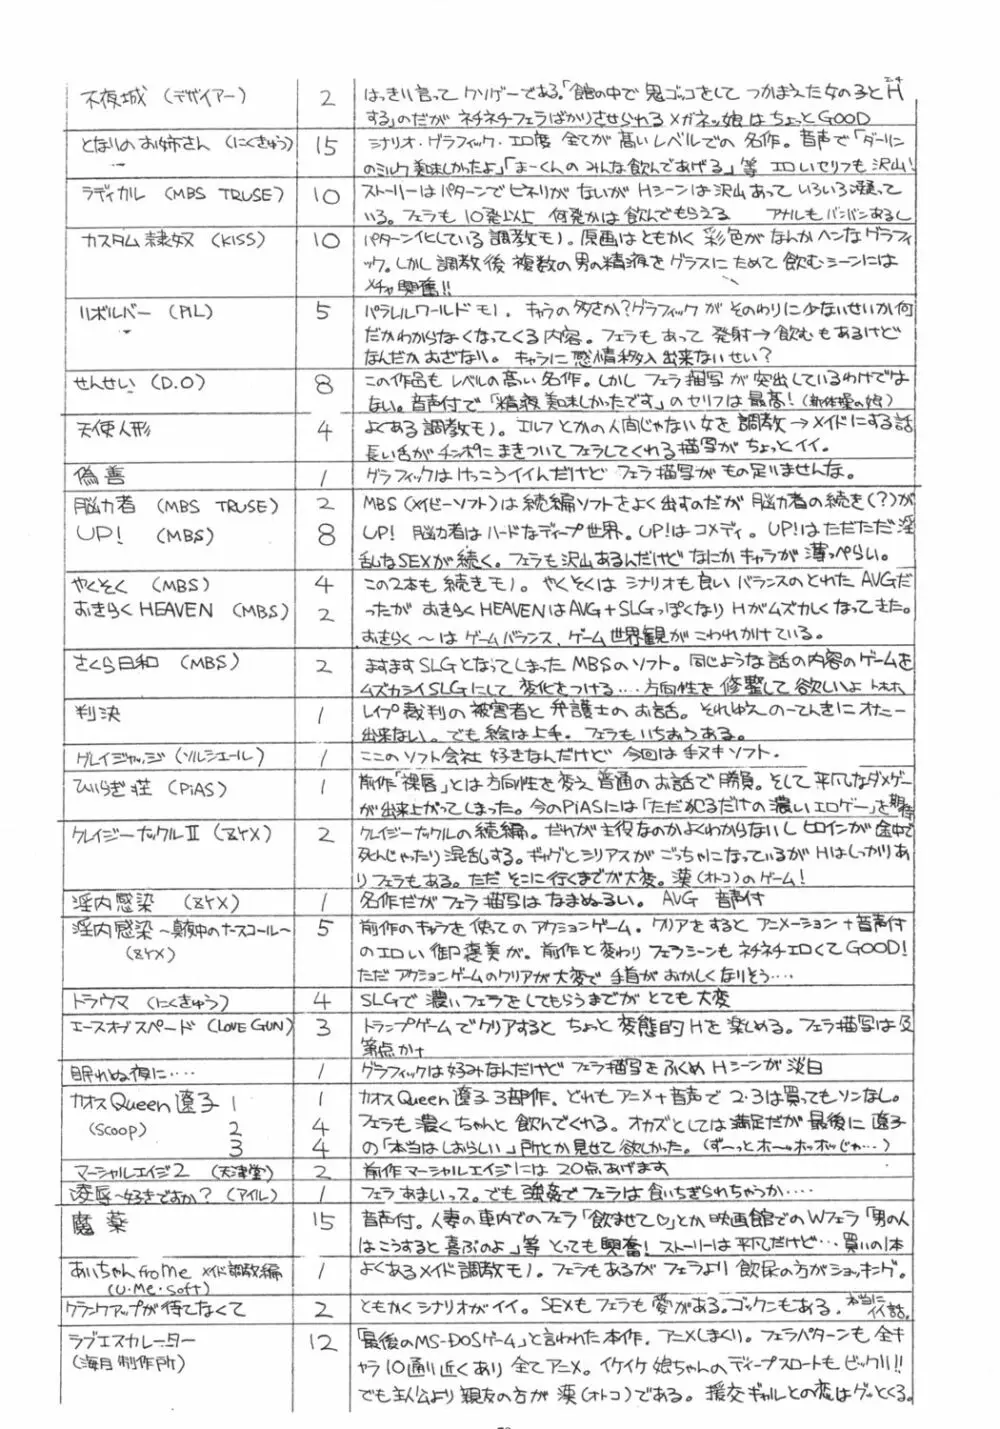 不夜城（デザイアー） 2 はっきり言ってクソゲーである。「館の中で鬼ゴッコをして つかまえた女の子とH
する」のだがネチネチフェラばかりさせられる メガネッ娘はちょっとGOOD
となりのお姉さん（にくきゅう） 15 シナリオ・グラフィック・エロ度 全てが高いレベルでの名作。音声で「ダーリン
のミルク美味しかったよ」「まーくんのみんな飲んであげる」等 エロいセリフも沢山！
ラディカル（MBS TRUSE） 10 ストーリーはパターンでヒネリがないがHシーンは沢山あっていろいろ凝って
いる。フェラも10発以上 何発かは飲んでもらえる アナルもバンバンあるし
カスタム隷奴（KISS） 10 パターン化している調教モノ。原画はともかく彩色がなんかヘンなグラフィ
ック。しかし調教後複数の男の精液をグラスにためて飲むシーンには
メチャ興奮!!
リボルバー（PIL） 5 パラレルワールドモノ。キャラの多さか？グラフィックがそのわりに少ないせいか何
だかわからなくなってくる内容。フェラもあって発射→飲むもあるけど
なんだかおざなり。キャラに感情移入出来ないせい？
せんせい（D.O） 8 この作品もレベルの高い名作。しかしフェラ描写が突出しているわけでは
ない。音声付で「精液美味しかったです」のセリフは最高！（新体操の娘）
天使人形 4 よくある調教モノ。エルフとかの人間じゃない女を調教→メイドにする話
長い舌がチンポにまきついてフェラしてくれる描写がちょっとイイ。
偽善 1 グラフィックはけっこうイイんだけどフェラ描写がもの足りませんな。
脳力者（MBS TRUSE） 2 MBS（メイビーソフト）は続編ソフトをよく出すのだが脳力者の続き（？）が
UP!（MBS） 8 UP! 脳力者はハードなディープ世界。UP!はコメディ。UP!はただただ淫
乱なSEXが続く。フェラも沢山あるんだけどなにかキャラが薄っぺらい。
やくそく（MBS） 4 この2本も続きモノ。やくそくはシナリオも良いバランスのとれたAVGだ
おきらくHEAVEN（MBS） 2 ったがおきらくHEAVENはAVG+SLGっぽくなりHがムズカしくなってきた。
おきらく～はゲームバランス、ゲーム世界観がこわれかけている。
さくら日和（MBS） 2 ますますSLGとなってしまったMBSのソフト。同じような話の内容のゲームを
ムズカシイSLGにして変化をつける‥‥方向性を修整して欲しいよ トホホ
判決 1 レイプ裁判の被害者と弁護士のお話。それゆえのーてんきにオナニー
出来ない。でも絵は上手。フェラもいちおうある。
グレイジャッジ（ソルシエール） 1 ここのソフト会社好きなんだけど今回は手ヌキソフト．
ひいらぎ荘（PiAS） 1 前作「裸唇」とは方向性を変え普通のお話で勝負。そして平凡なダメゲー
が出来上がってしまった。今のPiASには「ただ犯るだけの濃いエロゲー」を期待
クレイジーナックルII（ZYX） 2 クレイジーナックルの続編。だれが主役なのかよくわからないしヒロインが途中で
死んじゃったり混乱する。ギャグとシリアスがごっちゃになっているがHはしっかりあ
りフェラもある。ただそこに行くまでが大変。漢（オトコ）のゲーム！
淫内感染（ZYX） 1 名作だがフェラ描写はなまぬるい。AVG 音声付
淫内感染～真夜中のナースコール～ 5 前作のキャラを使ってのアクションゲーム。クリアをするとアニメーション＋音声付
（ZYX） のエロい御褒美が。前作と変わりフェラシーンもネチネチエロくてGOOD！
ただアクションゲームのクリアが大変で手首がおかしくなりそう‥‥
トラウマ（にくきゅう） 4 SLGで濃いフェラをしてもらうまでがとても大変
エースオブスペード（LOVE GUN） 3 トランプゲームでクリアするとちょと変態的Hを楽しめる。フェラ描写は及
第点かナ
眠れぬ夜に‥‥ 1 グラフィックは好みなんだけどフェラ描写をふくめHシーンが淡白
カオスQueen遼子 1 1 カオスQueen遼子3部作．どれもアニメ＋音声で2・3は買ってもソンなし。
（SCOOP） 2 4 フェラも濃くちゃんと飲んでくれる。オカズとしては満足だが最後に遼子
3 4 の「本当はしおらしい」所とか見せて欲しかった。（ず～っとホ～ッホッホッじゃ…）
マーシャルエイジ2（天津堂） 2 前作マーシャルエイジには20点あげます
凌辱～好きですか？（アイル） 1 フェラあまいっス。でも強姦でフェラは食いちぎられちゃうか‥‥
魔薬 15 音声付。人妻の車内でのフェラ「飲ませて♡」とか映画館でのWフェラ「男の人
はこうすると喜ぶのよ」等 とっても興奮！ストーリーは平凡だけど…買いの1本
あいちゃんfroMe メイド調教編 1 よくあるメイド調教モノ。フェラもあるがフェラより飲尿の方がショッキング。
（U・Me・Soft）
クランクアップが待てなくて 2 ともかくシナリオがイイ。SEXもフェラも愛がある。ゴックンもある。本当にイイ話。
ラブエスカレーター 12 「最後のMS-DOSゲーム」と言われた本作．アニメしまくり。フェラパターンも全キ
（海月製作所） ャラ10通り近くあり全てアニメ。イケイケ娘ちゃんのディープスロートもビックリ!!
でも主人公より親友の方が漢（オトコ）である。援交ギャルとの恋はグッとくる。